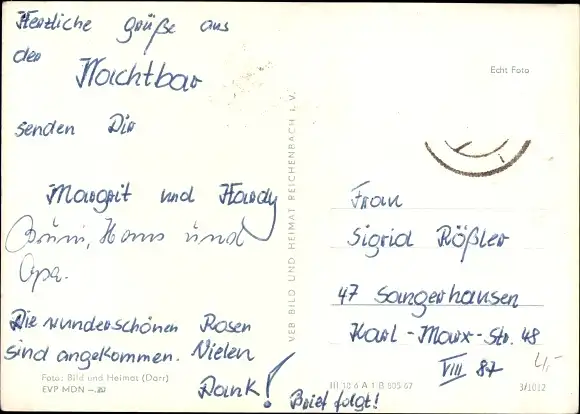 Herzliche Grüße aus
der Nachtbar
senden Dir
Margrit und Hardy
Omi, Hans und
Opa.
Die wunderschönen Rosen
sind angekommen. Vielen
Dank!
Brief folgt!
Foto: Bild und Heimat (Darr)
EVP MDN -.20
VEB BILD UND HEIMAT REICHENBACH i. V.
Echt Foto
Frau
Sigrid Rößler
47 Sangerhausen
Karl-Marx-Str. 48
VIII 87
4,-
III 18 6 A 1 B 505/67
3/1012